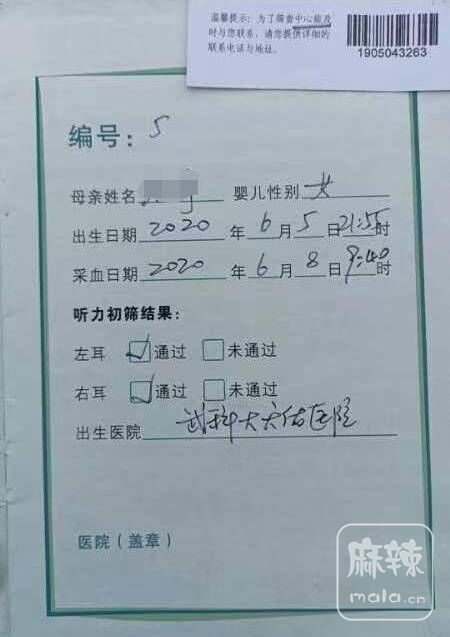 温馨提示：为了筛查中心能及
时与您联系，请您提供详细的
联系电话与地址。
1905043263
编号：5
母亲姓名 婴儿性别 女
出生日期 2020 年 6 月 5 日 21:55 时
采血日期 2020 年 6 月 8 日 9:40 时
听力初筛结果：
左耳 ☑通过 □未通过
右耳 ☑通过 □未通过
出生医院 武科大天佑医院
医院（盖章）
麻辣
mala.cn